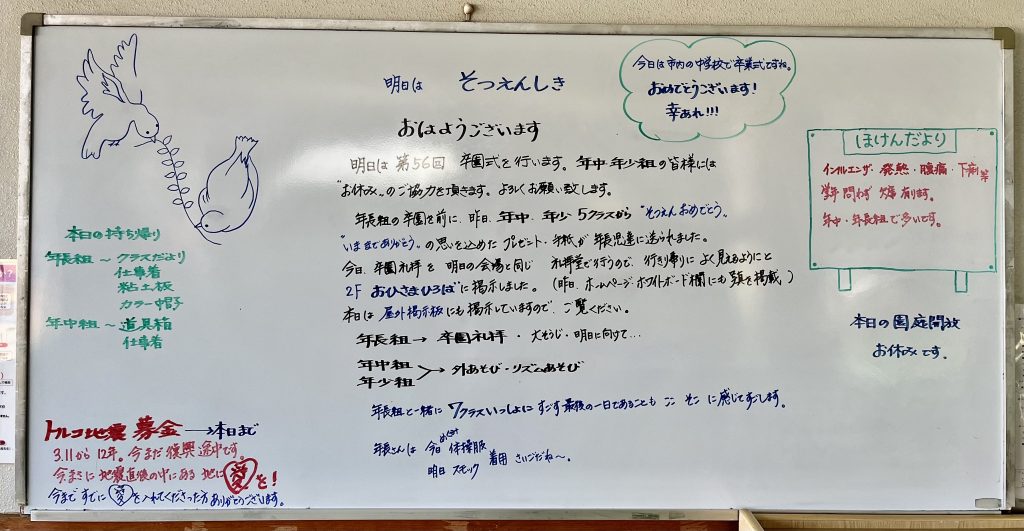 明日は そつえんしき
今日は市内の中学校で卒業式ですね。
おめでとうございます!
幸あれ!!!
おはようございます
明日は 第56回 卒園式を行います。年中・年少組の皆様には
"お休み"のご協力を頂きます。よろしくお願い致します。
年長組の卒園を前に、昨日、年中、年少 5クラスから "そつえんおめでとう。
"いままでありがとう"の思いを込めた プレゼント・手紙が年長児達に送られました。
今日、卒園礼拝を 明日の会場と同じ 礼拝堂で行うので、行き帰りに よく見えるようにと
2F おひさまひろばに掲示しました。(昨日、ホームページ・ホワイトボード欄にも 掲載)
本日は 屋外掲示板にも掲示していますので、ご覧ください。
年長組 → 卒園礼拝 ・ 大そうじ・明日に向けて…
年中組
年少組 > 外あそび・リズムあそび
年長組と一緒に 7クラスいっしょにすごす最後の一日であることも 心 そこ に感じてすごします。
年長さんは 今日 体操服
明日 スモック 着用 さいごだね〜。
ほけんだより
インフルエンザ・発熱・腹痛・下痢等
学年問わず 欠席有ります。
年中・年長組で多いです。
本日の園庭開放
お休みです。
本日の持ち帰り
年長組 〜 クラスだより
仕事着
粘土板
カラー帽子
年中組 〜 道具箱
仕事着
トルコ地震 募金 → 本日まで
3.11から12年。今まだ復興途中です。
今まさに 地震直後の中にある地に 愛を!
今まですでに 愛を入れてくださった方 ありがとうございます。